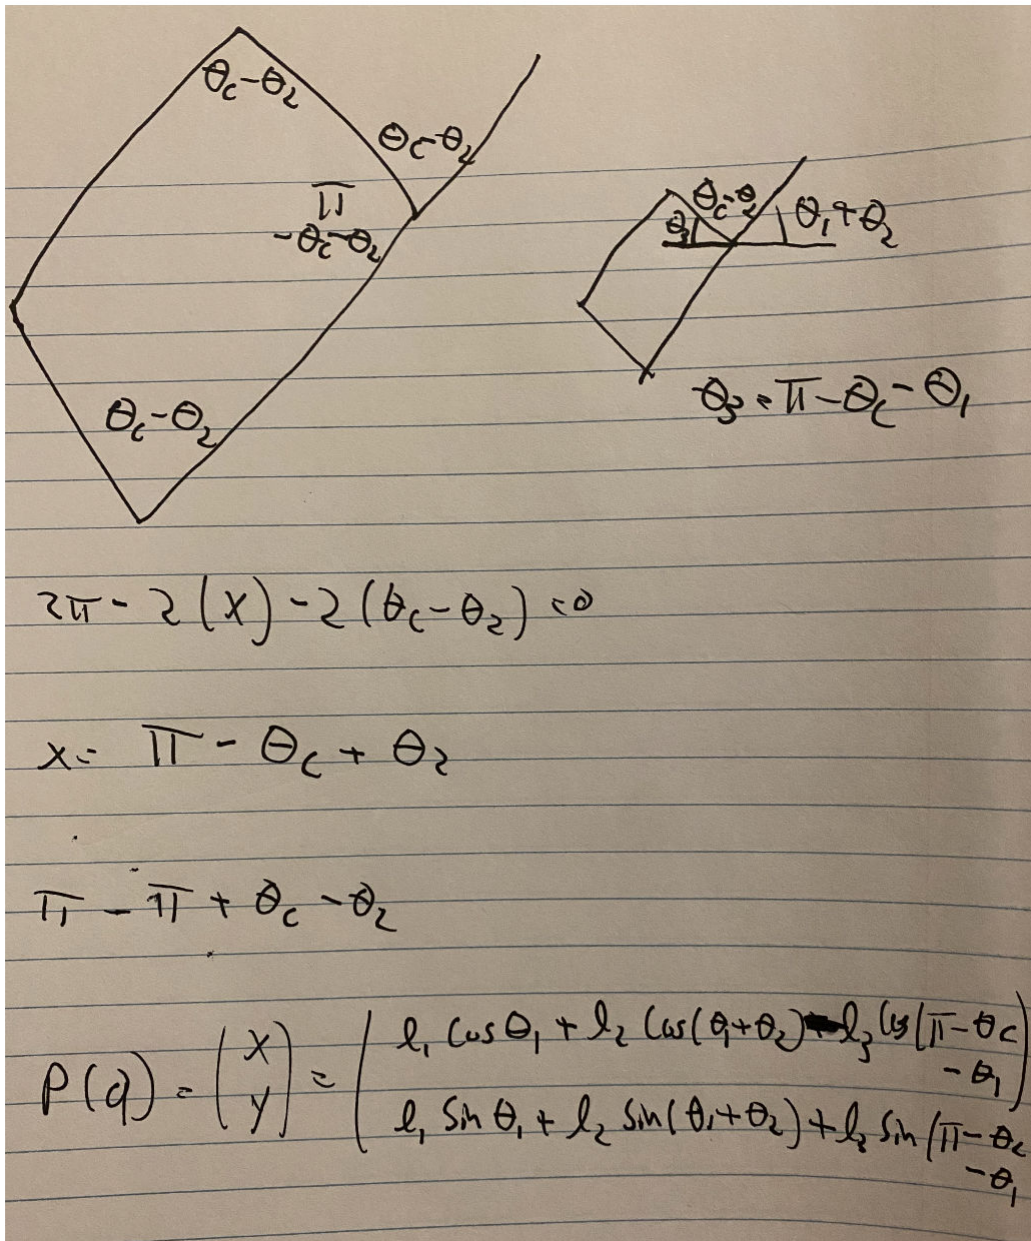 θc-θ2
θc-θ2
π
-θc-θ2
θc-θ2
θc-θ2
θ3
θ1+θ2
θ3 = π-θc-θ1
2π - 2(x) - 2(θc-θ2) = 0
x = π - θc + θ2
π - π + θc - θ2
P(q) = (x y) = (l1 cos θ1 + l2 cos(θ1+θ2) - l3 cos(π-θc
-θ1)
l1 sin θ1 + l2 sin(θ1+θ2) + l3 sin(π-θc
-θ1